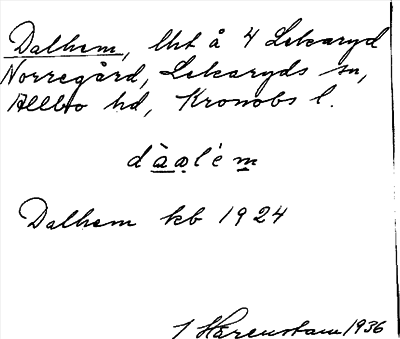 Dalhem, lht å 4 Lekaryd
Norregård, Lekaryds sn,
Allbo hd, Kronobs l.
dàꬱlém
Dalhem kb 1924
J Harenstam 1936